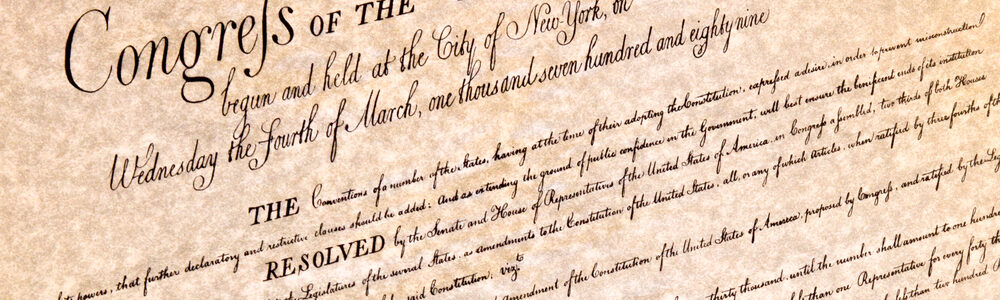 Congreſs OF THE
begun and held at the City of New-York, on
Wednesday the Fourth of March, one thousand seven hundred and eighty nine
THE Conventions of a number of the States, having at the time of their adopting the Constitution, expressed a desire, in order to prevent misconstruction
powers, that further declaratory and restrictive clauses should be added: And as extending the ground of public confidence in the Government, will best ensure the beneficent ends of its institution
RESOLVED by the Senate and House of Representatives of the United States of America, in Congreſs aſsembled, two thirds of both Houses
Legislatures of the several States, as amendments to the Constitution of the United States, all, or any of which Articles, when ratified by three fourths of
said Constitution, vizt.
amendment of the Constitution of the United States of America, proposed by Congreſs, and ratified by the
thirty thousand, until the number shall amount to one
than one Representative for every forty
than two hundred